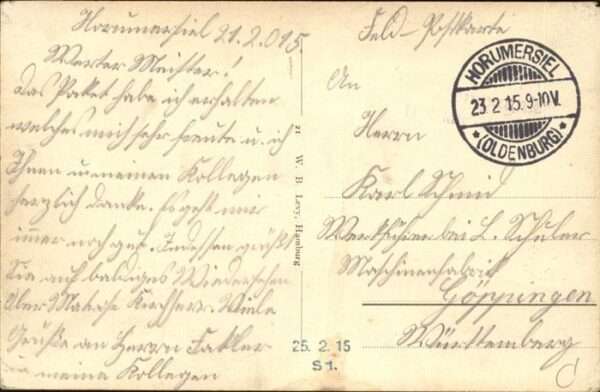 Horumersiel 21.2.015.
Werter Meister!
Das Paket habe ich erhalten
welches mich sehr freute u. ich
Ihnen u. meinen Kollegen
herzlich danke. Es geht mir
immer noch gut. Indessen grüßt
Sie auf baldiges Wiedersehen
Ober Matrose Viele
Grüße an Herrn
u meine Kollegen
21 W. B. Levy, Hamburg
25. 2. 15
S1.
Feld-Postkarte
HORUMERSIEL
23.2.15.9-10V.
*(OLDENBURG)*
An
Herrn
Karl Schmid
Werkführer bei L. Schuler
Maschinenfabrik
Göppingen
Württemberg